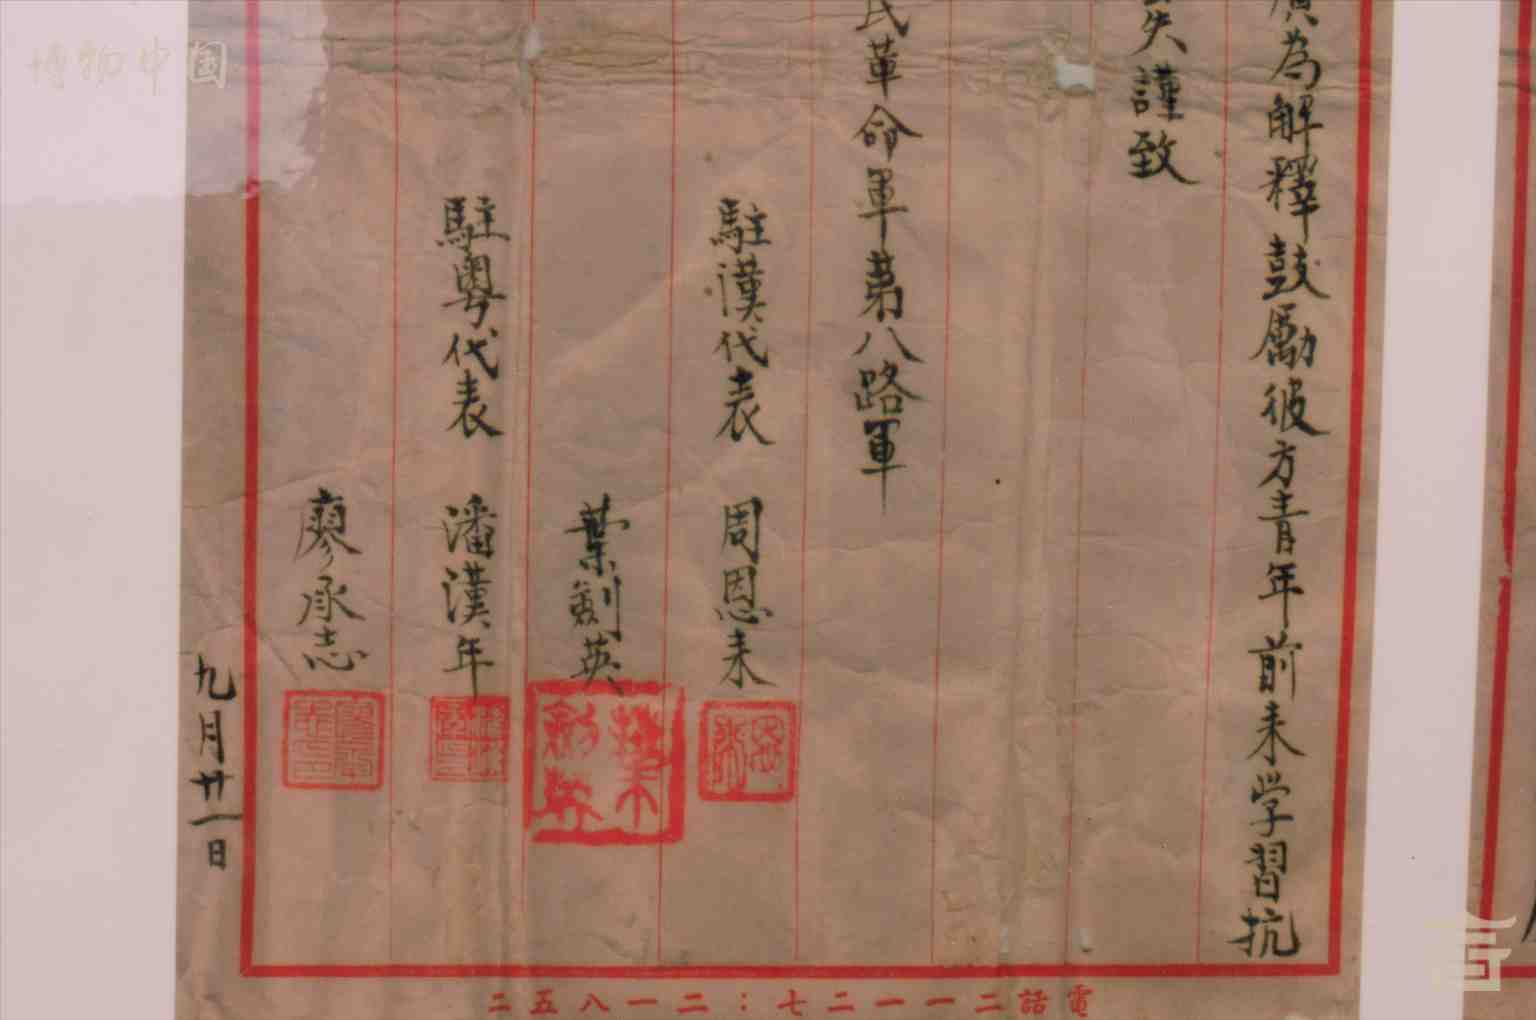 廣為解釋鼓勵彼方青年前来学習抗
失謹致
民革命軍第八路軍
駐漢代表 周恩来
葉劍英
駐粤代表 潘漢年
廖承志
九月廿一日
電話二一一二七:二一八五二
葉劍英
博物中国